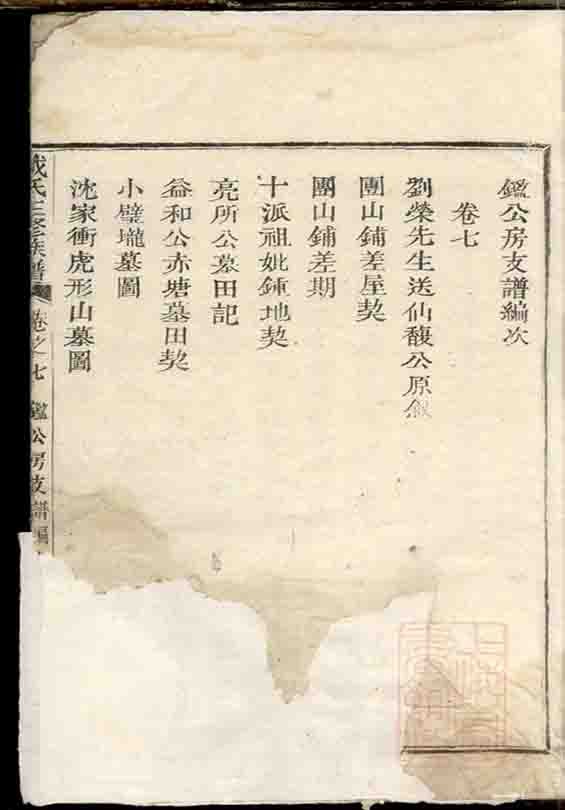 鑑公房支譜編次
卷七
劉榮先生送仙馥公原叙
團山鋪差屋契
團山鋪差期
十派祖妣鍾地契
亮所公墓田記
益和公赤塘墓田契
小壁壠墓圖
沈家衝虎形山墓圖
氏三修族譜 卷之七 鑑公房支譜編